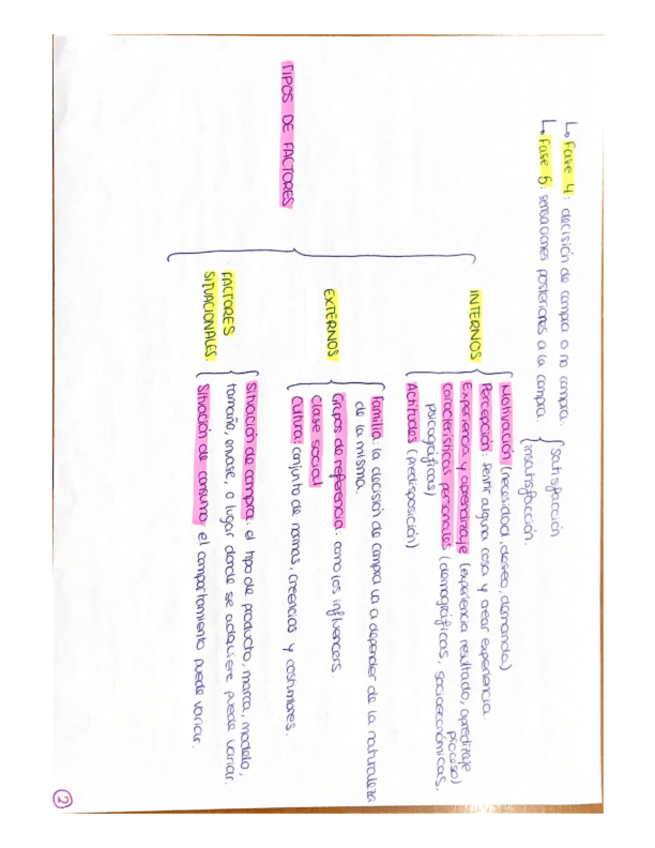 ↳ Fase 4: decisión de compra o no compra.
↳ Fase 5: sensaciones posteriores a la compra. { satisfacción
insatisfacción.
TIPOS DE FACTORES
INTERNOS
Motivación (necesidad, deseo, demanda)
Percepción: sentir alguna cosa y crear experiencia.
Experiencia y aprendizaje (experiencia resultado, apredizaje
proceso)
Características personales (demográficas, socioeconómicas,
psicográficas)
Actitudes (predisposición)
EXTERNOS
Familia: la decisión de compra va a depender de la naturaleza
de la misma.
Grupos de referencia: como los influencers.
Clase social
Cultura: conjunto de normas, creencias y costumbres.
FACTORES
SITUACIONALES.
Situación de compra: el tipo de producto, marca, modelo,
tamaño, envase, o lugar donde se adquiere puede variar.
Situación de consumo: el comportamiento puede variar.
2